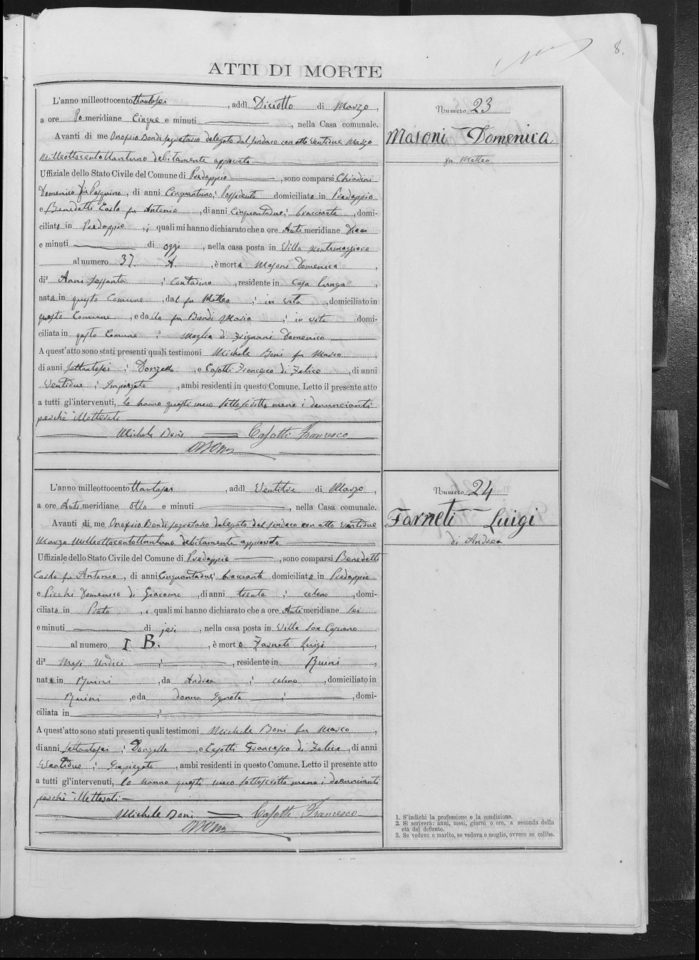 8.
ATTI DI MORTE
L'anno millottocento ttantasei , addì Diciotto di Marzo ,
a ore Po meridiane Cinque e minuti , nella Casa comunale.
Avanti di me Onofrio Bondi segretario delegato dal sindaco con atto Ventidue Marzo
Milleottocentottantuno debitamente approvato
Uffiziale dello Stato Civile del Comune di Predappio , sono comparsi
Domenico fu Pasquino , di anni Cinquantuno ; Possidente domiciliato in Predappio
e Benedetti Carlo fu Antonio , di anni Cinquantadue ; bracciante , domi-
ciliato in Predappio ; i quali mi hanno dichiarato che a ore Anti meridiane
e minuti di oggi , nella casa posta in Villa Montemaggiore
al numero 37. A. , è morta Masoni Domenica ,
di² Anni sessanta ; Contadina , residente in Casa ,
nata in questo Comune , dal fu Matteo ; in vita , domiciliato in
questo Comune , e da la fu Bondi Maria ; in vita domi-
ciliata in questo Comune ; Moglie di Zignani Domenico
A quest'atto sono stati presenti quali testimoni Michele Boni fu Marco
di anni settantasei ; Donzello , e Casotti Francesco di Felice , di anni
Ventidue ; Impiegato , ambi residenti in questo Comune. Letto il presente atto
a tutti gl'intervenuti, lo hanno questi meco sottoscritto meno i denuncianti
perchè illetterati
Michele Boni Casotti Francesco
OBondi
Numero 23
Masoni Domenica
fu Matteo
L'anno millottocento ttantasei , addì Ventitre di Marzo ,
a ore Anti meridiane Otto e minuti , nella Casa comunale.
Avanti di me Onofrio Bondi segretario delegato dal sindaco con atto Ventidue
Marzo Milleottocentottantuno debitamente approvato
Uffiziale dello Stato Civile del Comune di Predappio , sono comparsi Benedetti
Carlo fu Antonio , di anni Cinquantadue ; bracciante domiciliato in Predappio
e Picchi Domenico di Giacomo , di anni trenta ; colono , domi-
ciliato in , i quali mi hanno dichiarato che a ore Anti meridiane sei
e minuti di jeri , nella casa posta in Villa San Cipriano
al numero 1 B. , è morto Farneti Luigi ,
di² Mesi Undici ; , residente in Burini ,
nato in Burini , da Andrea ; colono , domiciliato in
Burini , e da donna Ignota ; domi-
ciliata in ;
A quest'atto sono stati presenti quali testimoni Michele Boni fu Marco
di anni settantasei ; Donzello , e Casotti Francesco di Felice , di anni
Ventidue ; Impiegato , ambi residenti in questo Comune. Letto il presente atto
a tutti gl'intervenuti, lo hanno questi meco sottoscritto meno i denuncianti
perchè illetterati
Michele Boni Casotti Francesco
OBondi
Numero 24
Farneti Luigi
di Andrea
1. S'indichi la professione o la condizione.
2. Si scriverà: anni, mesi, giorni o ore, a seconda della
età del defunto.
3. Se vedovo o marito, se vedova o moglie, ovvero se celibe.